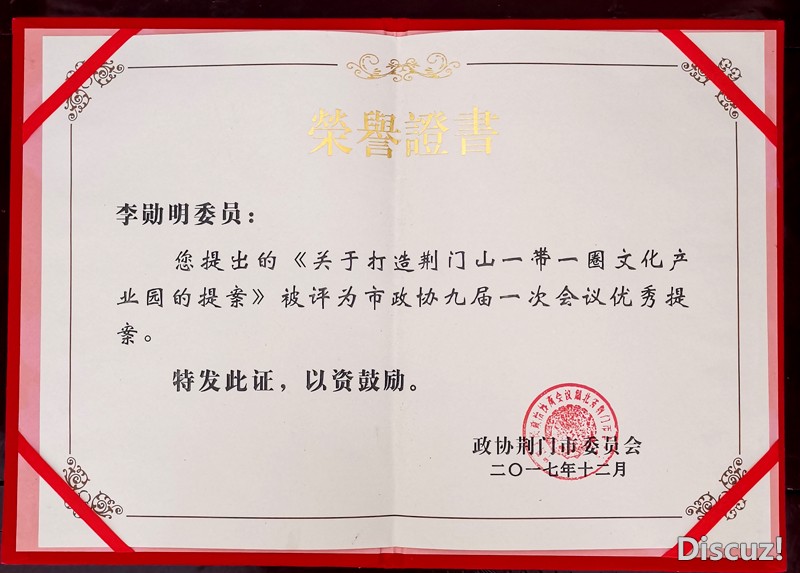 榮譽證書
李勋明委员：
您提出的《关于打造荆门山一带一圈文化产
业园的提案》被评为市政协九届一次会议优秀提
案。
特发此证，以资鼓励。
政协荆门市委员会
二〇一七年十二月
Discuz!